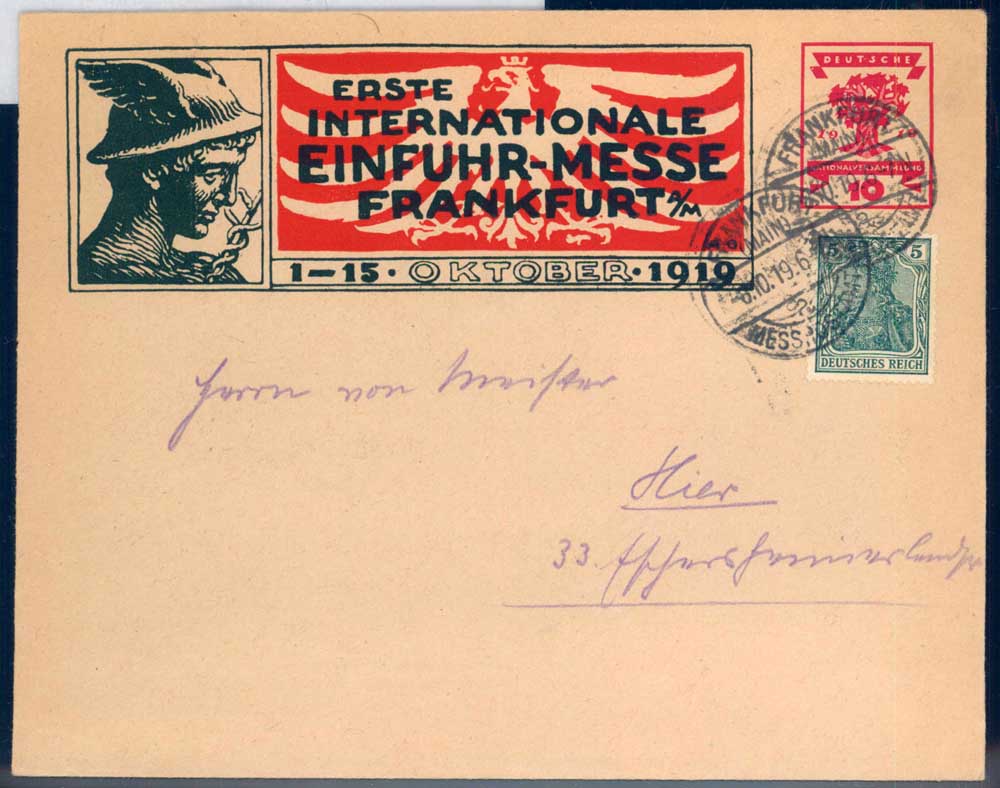 ERSTE
INTERNATIONALE
EINFUHR-MESSE
FRANKFURT A/M
1-15· OKTOBER ·1919
DEUTSCHE
19 19
NATIONALVERSAMMLUNG
10
FRANKFURT
(MAIN)
FRANKFURT
(MAIN)
6.10.19.6
MESS
5 5
DEUTSCHES REICH
Herrn von Meister
Hier
33 Eschersheimerlandstr